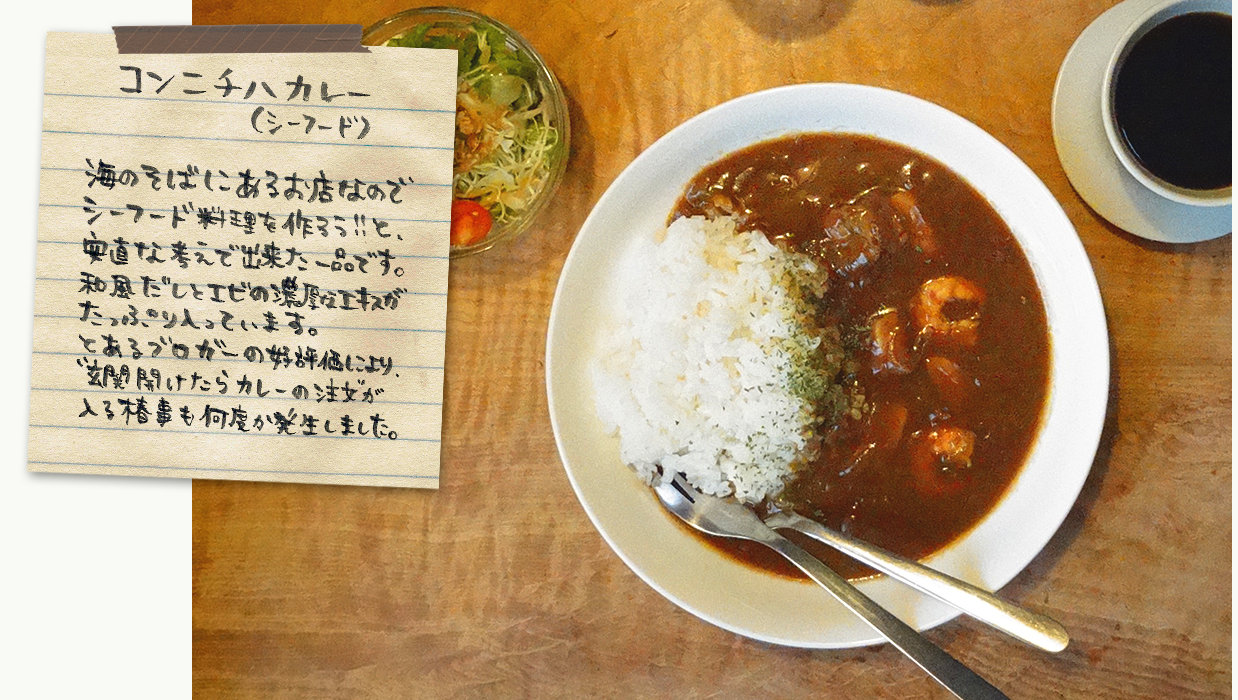 コンニチハカレー
(シーフード)
海のそばにあるお店なので
シーフード料理を作ろう!!と、
実直な考えで出来た一品です。
和風だしとエビの濃厚なエキスが
たっぷり入っています。
とあるブロガーの好評価により、
"玄関開けたらカレーの注文"が
入る椿事も何度か発生しました。